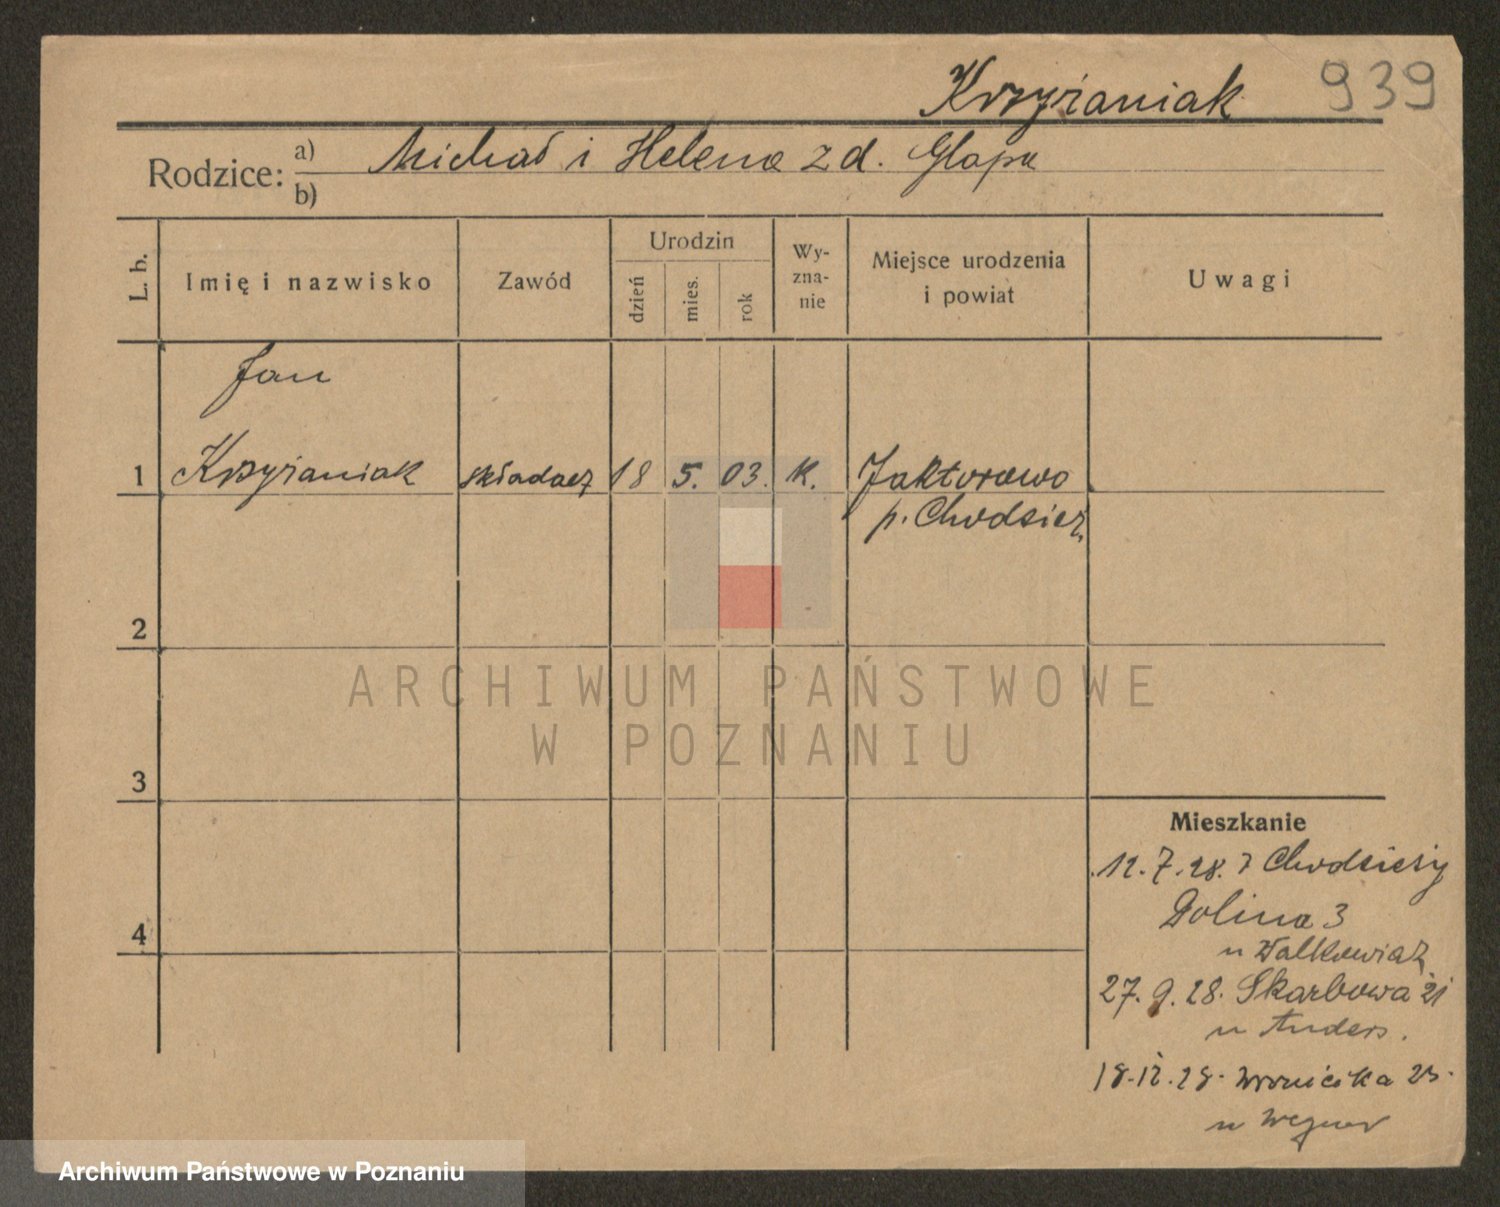 Krzyżaniak 939
Rodzice: a) Michał i Helena z d. Glapa
b)
L. b.
Imię i nazwisko
Zawód
Urodzin
dzień
mies.
rok
Wy-
zna-
nie
Miejsce urodzenia
i powiat
Uwagi
Jan
1 Krzyżaniak składacz 18 5. 03. K. Jaktorowo
p. Chodzież
2
ARCHIWUM PAŃSTWOWE
W POZNANIU
3
Mieszkanie
12.7.28. z Chodzieży
Dolina 3
4
u Walkowiak
27.9.28. Skarbowa 21
u Anders.
18.12.28. Wroniecka
u Wegner
Archiwum Państwowe w Poznaniu